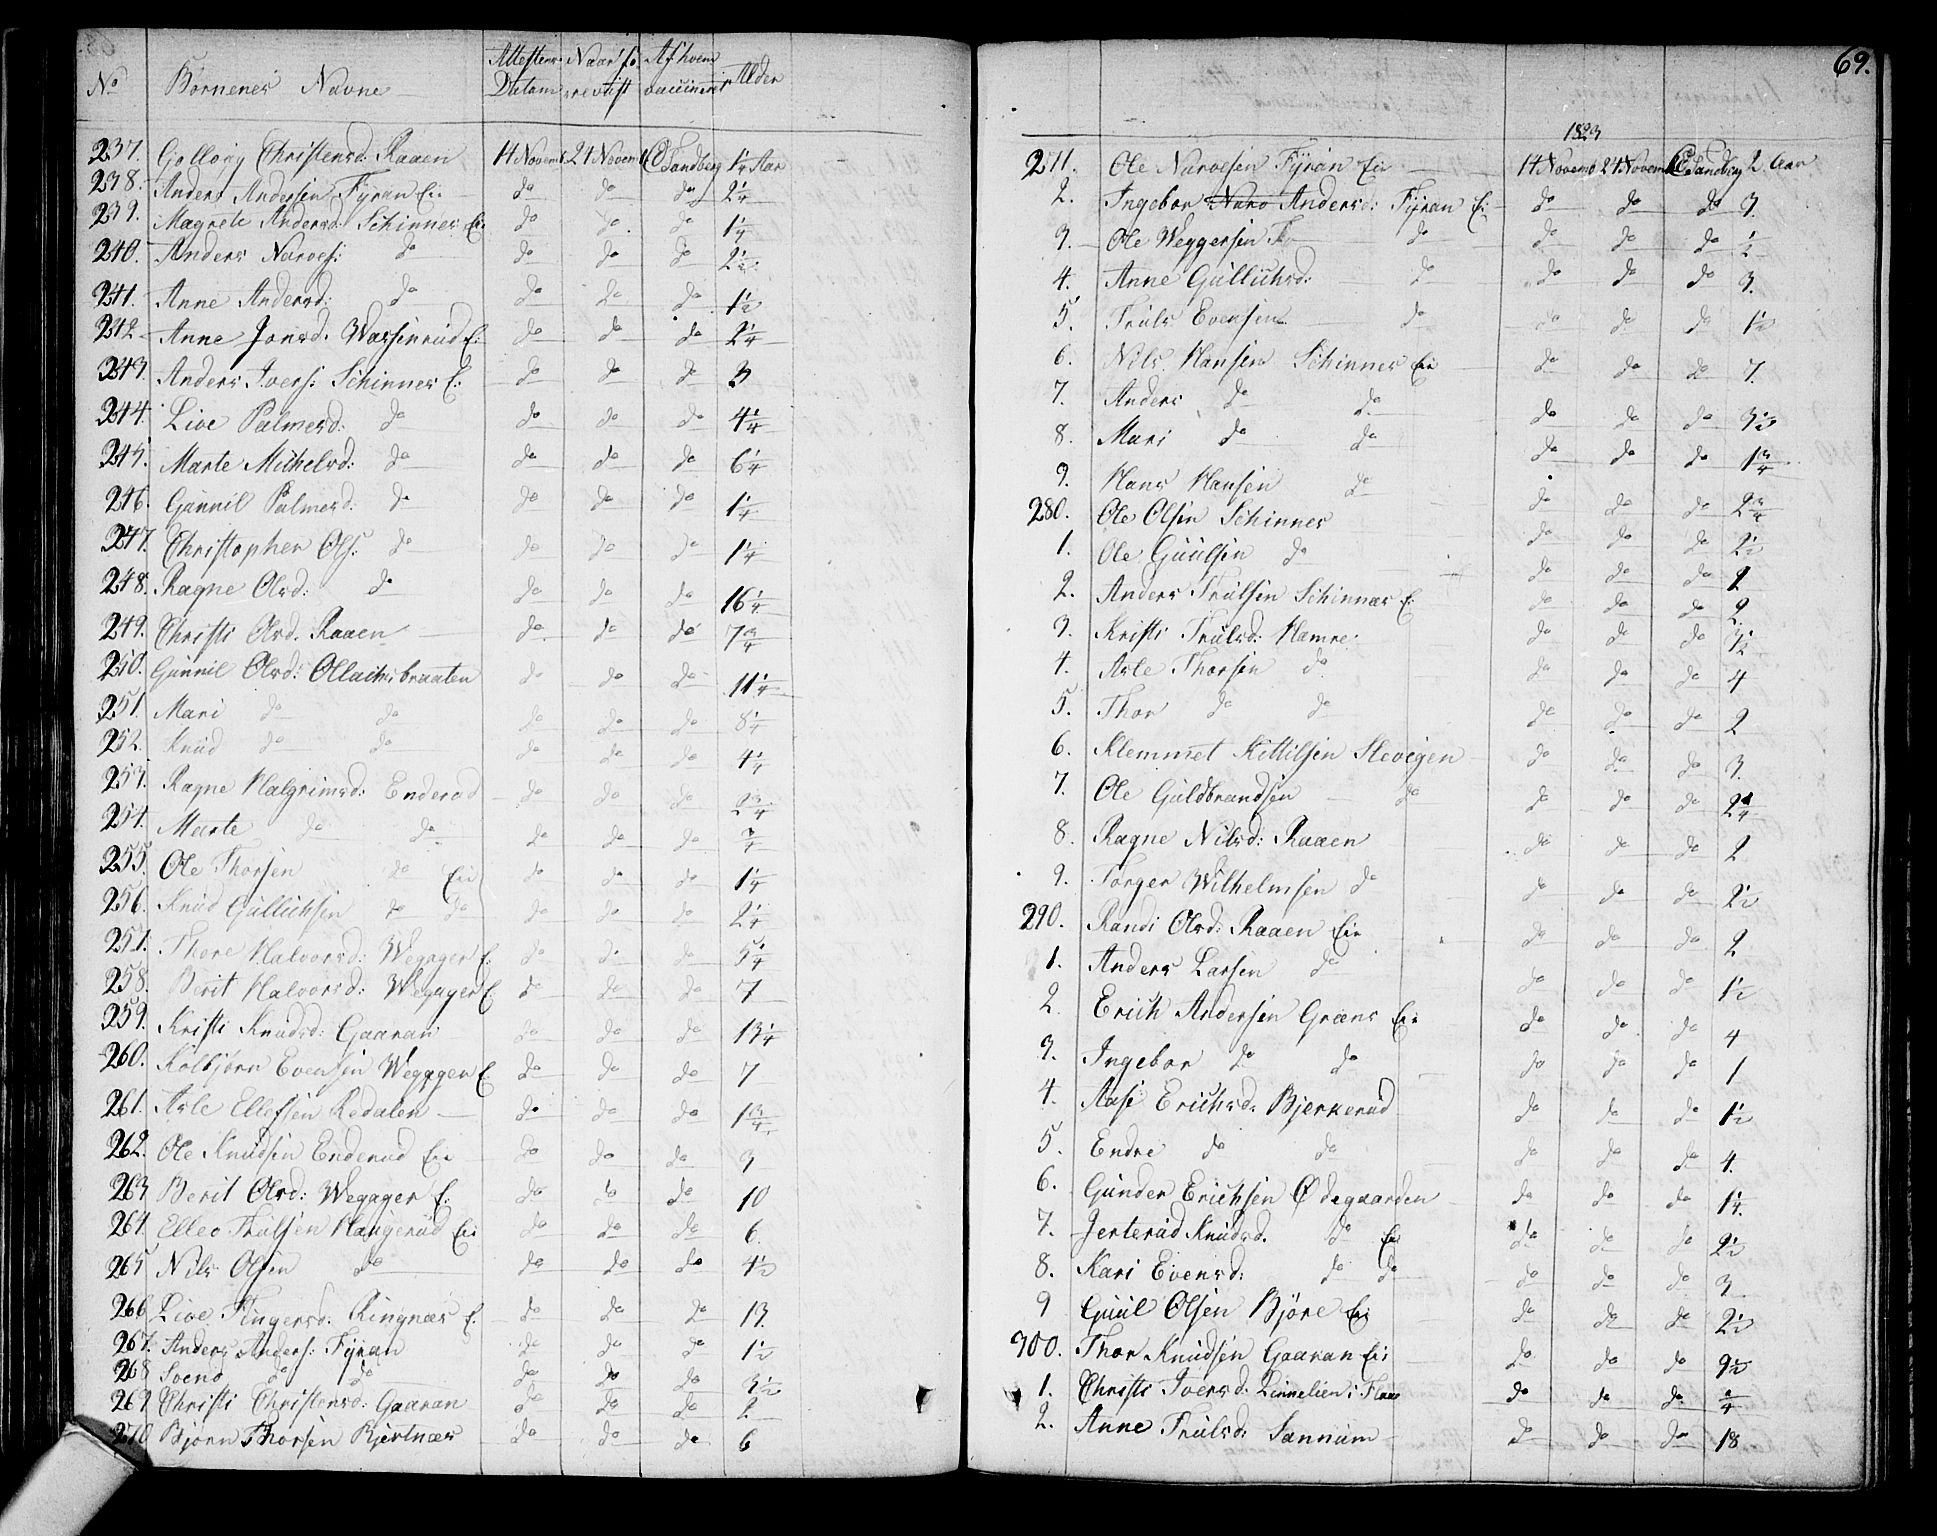 No Børnenes Navne Attestens Datum Naar fo revist Af hvem vaccineret Alder
237. Christensd: Raaen 14 Novemb. 21 Novemb C Sandberg 1 1/4 Aar
238. Anders Andersen Fyran Ei do do do 2 1/4
239. Magrete Andersd: Schinnes Ei. do do. do 1 1/4
240. Anders Narves: do do do do 2 1/2
241. Anne Andersd: do do do do 1 1/2
242 Anne Jonsd. Wassenrud E: do do do 2 1/4
243. Anders Ivers: Schinnes E: do do do 3
244. Live Palmesd: do do do do 4 1/4
245. Marte Michelsd: do do do do 6 1/4
246. Gunnil Palmesd: do do do do 1 1/4
247. Christopher Ols: do do do do 1 1/4
248. Ragne Olsd: do do do do 16 1/4
249. Christi Olsd. Raaen do do do 7 3/4
250. Gunnil Olsd: Ollachsbraaten do do do 11 1/4
251. Mari do do do do do 8 1/4
252. Knud do do do do do 4 1/4
253. Ragne Halgrimsd: Enderud do do do 2 3/4
254. Marte do do do do do 3/4
255. Ole Thorsen do Eie do do do 1 1/4
256. Knud Gullichsen do do do do do 2 1/4
257. Thore Halvorsd: Wegager E: do do do 5 1/4
258. Berit Halvorsd: Wegager E. do do do 7
259. Kristi Knudsd: Gaaran do do do 13 1/4
260. Kolbjørn Evensen Wegager E. do do do 7
261. Asle Ellefsen Redalen do do do 1 3/4
262. Ole Knudsen Enderud Eie do do do 3
263 Berit Olsd: Wegager E. do do do 10
264. Ellev Trulsen Haugerud Eie do do do 6.
265 Nils Olsen do do do do 4 1/2
266 Live Ringnæs E. do do do 13.
267. Anders Anders: Fyran do do do 1 1/2
268 Svend do do do do do 3 1/2
269 Christi Christensd: Gaaran do do do 2
270 Bjørn Thorsen Bjertnæs do do do 6
69.
1823
271. Ole Narvesen Fyran Eie 14 Novemb 21 Novemb C Sandberg 2 Aar
2. Ingebor Narv Andersd: Fyran Ei do do do 3.
3. Ole Weggersen do do do do 1/2
4. Anne Gullichsd: do do do do 3.
5. Truls Evensen do do do do 1 1/2
6. Nils Hansen Schinnes Eie do do do 7.
7. Anders do do do do do 3 1/2
8. Mari do do do do do 1 3/4
9. Hans Hansen do do do do 2 3/4
280. Ole Olsen Schinnes do do do 2 1/2
1. Ole Guulsen do do do do 2
2. Anders Trulsen Schinnes E. do do do 2.
3. Kristi Trulsd: Hamre. do do do 3 1/2
4. Asle Thorsen do do do do 4
5. Thor do do do do do 2
6. Klemmet Kittilsen Slevigen do do do 3.
7. Ole Guldbrandsen do do do do 2 1/4
8. Ragne Nilsd: Raaen do do do 2
9. Torger Wilhelmsen do do do do 2 1/2
290. Randi Olsd: Raaen Eie do do do 2
1. Anders Larsen do do do do 1 1/2
2. Erich Andersen Græns Eie do do do 4
3. Ingebor do do do do do 1
4. Aase Erichsd: Bjerkerud do do do 1 1/2
5. Endre do do do do do 4.
6. Gunder Erichsen Ødegaarden do do do 1 1/4.
7. Jerterud Knudsd. do Ei do do do 2 1/2
8. Kari Evensd: do do do do do 3
9 Guul Olsen Bjøre Eie do do do 2 1/2
300. Thor Knudsen Gaaran Eie do do do 9 1/2
1. Christi Iversd. Linnelien i Flaae do do do 3/4
2. Anne Trulsd: Sannum do do do 18